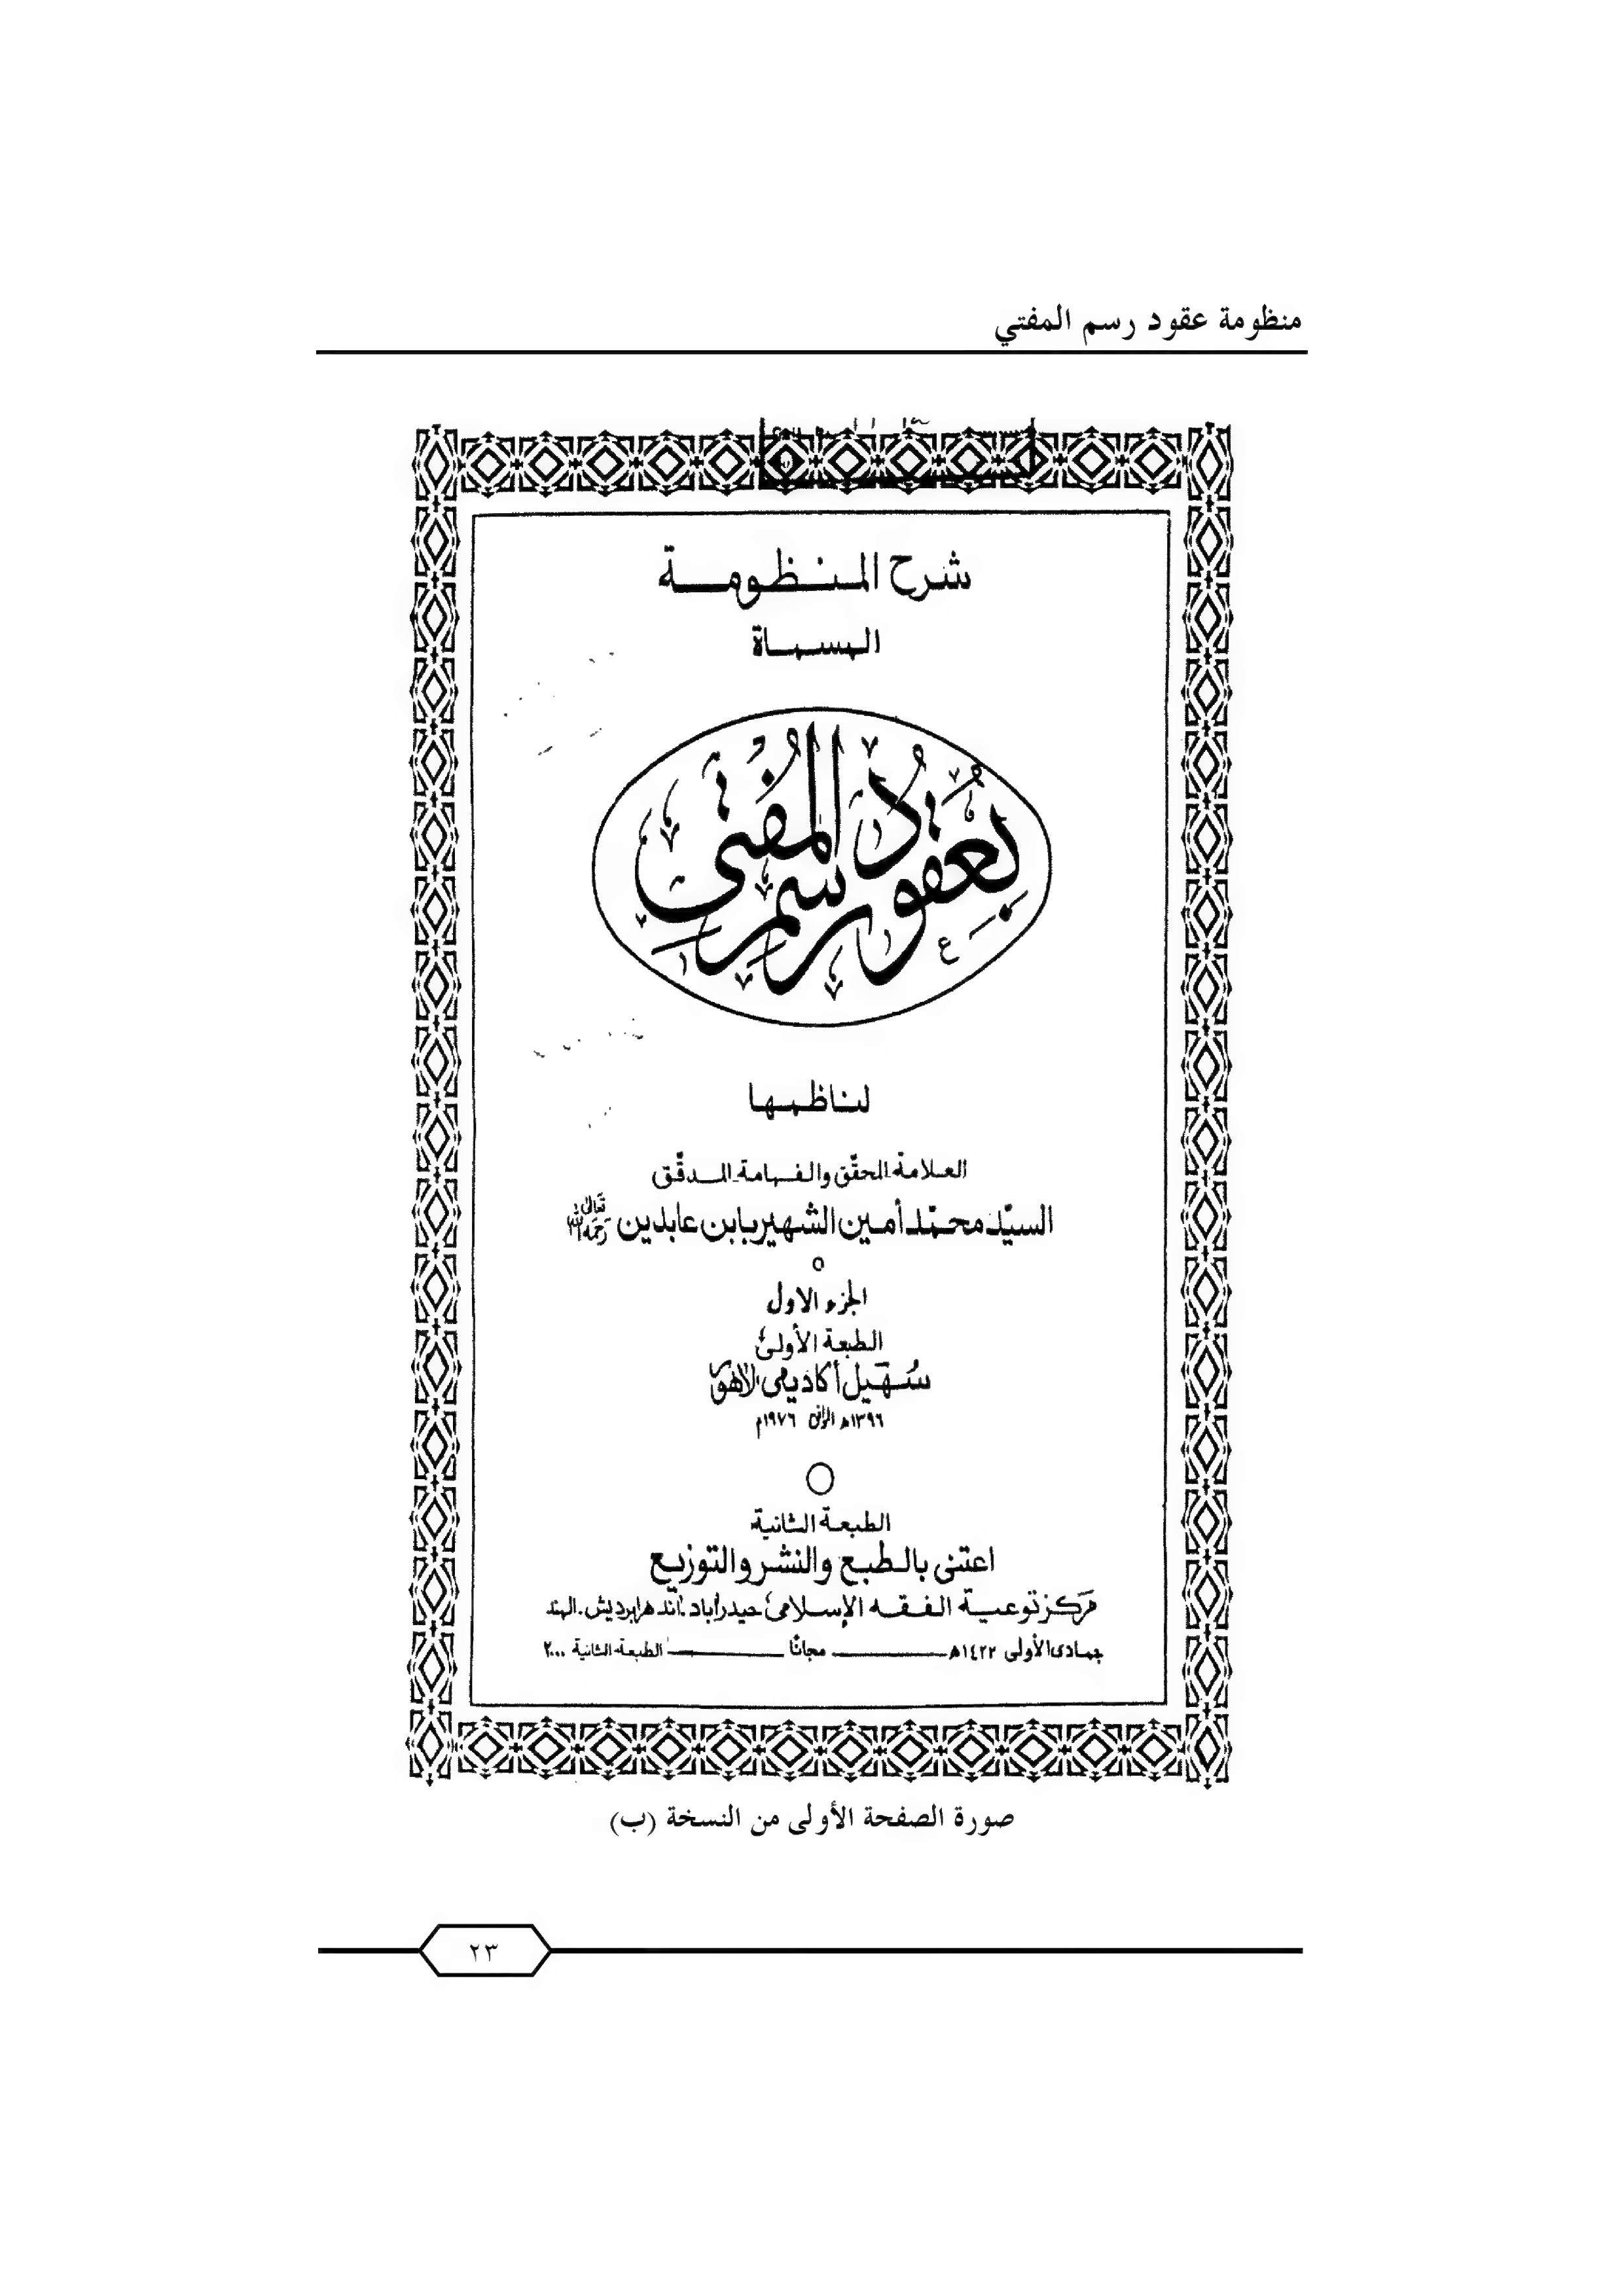 منظومة عقود رسم المفتي
شرح المنظومة
المسماة
بعُقود رسم المُفتي
لناظمها
العلامة المحقّق والفهامة المدقّق
السيّد محمّد أمين الشهير بابن عابدين رحمه الله تعالىٰ
الجزء الاول
الطبعة الأولىٰ
سُهَيل أكاديمي لاهور
١٣٩٦ه الموافق ١٩٧٦م
الطبعة الثانية
اعتنى بالطبع والنشر والتوزيع
مركز توعية الفقه الإسلامي حيدرآباد. آندهرابرديش. الهند
جمادى الأولى ١٤٢٢ه مجانًا الطبعة الثانية ٢٠٠٠
صورة الصفحة الأولى من النسخة (ب)
٢٣